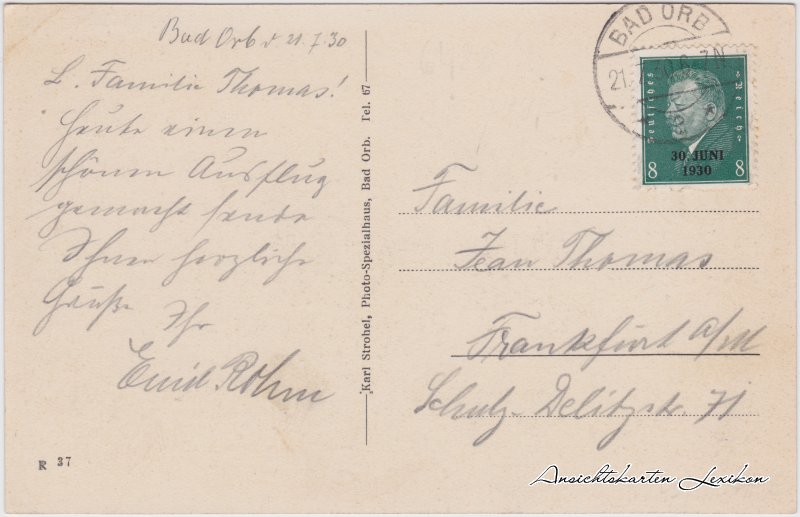 Bad Orb d 21.7.30
L. Familie Thomas!
Heute einen
schönen Ausflug
gemacht sende
Ihnen herzliche
Grüße Ihr
Rohm
Karl Strohel, Photo-Spezialhaus, Bad Orb. Tel. 67
R 37
BAD ORB
21.7.30
Deutsches Reich
30. JUNI
1930
8 8
Familie
Jean Thomas
Frankfurt a/M
Schulz-Delitzstr. 71
Ansichtskarten Lexikon